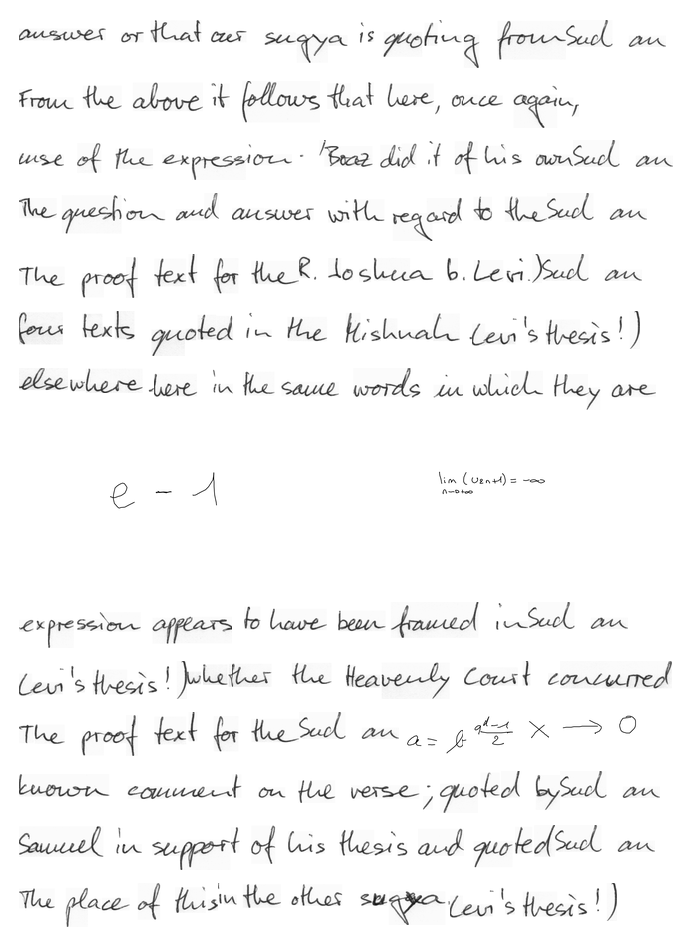 answer or that our sugya is quoting from Sud an
From the above it follows that here, once again,
use of the expression. 'Boaz did it of his own Sud an
The question and answer with regard to the Sud an
The proof text for the R. Joshua b. Levi.) Sud an
four texts quoted in the Mishnah Levi's thesis!)
elsewhere here in the same words in which they are
e - 1
lim (u2n+1) = -∞
n→+∞
expression appears to have been framed in Sud an
Levi's thesis!) whether the Heavenly Court concurred
The proof text for the Sud an a = b^{\frac{q^d-1}{2}} x → 0
known comment on the verse; quoted by Sud an
Samuel in support of his thesis and quoted Sud an
The place of this in the other sugya. Levi's thesis!)